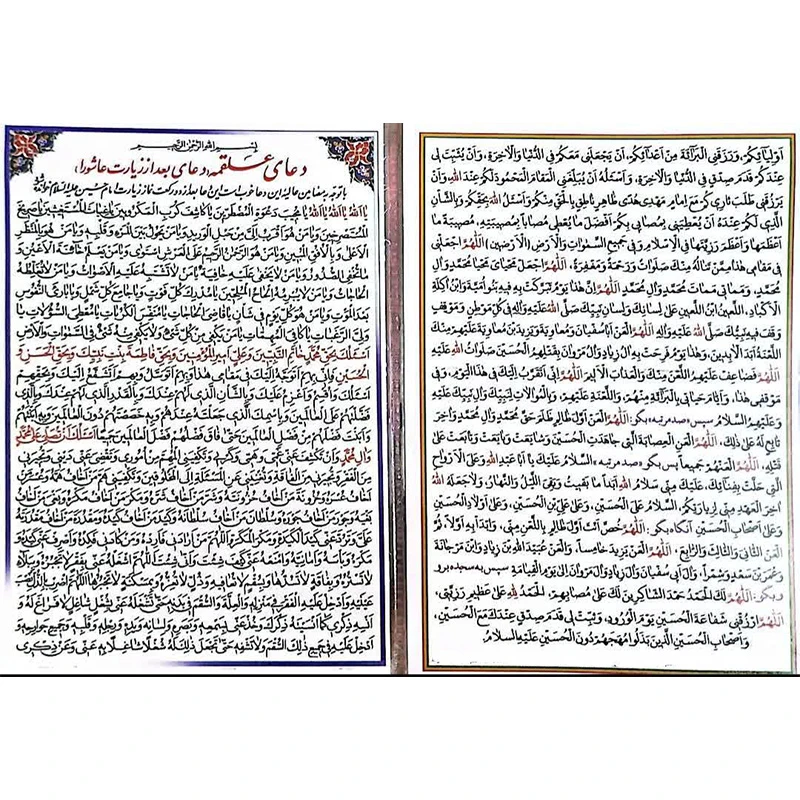 اَوْلِيٰائِكُمْ، وَرَزَقَنِى الْبَرٰائَةَ مِنْ اَعْدٰائِكُمْ، اَنْ يَجْعَلَنى مَعَكُمْ فِى الدُّنْيٰا وَالْاٰخِرَةِ، وَاَنْ يُثَبِّتَ لى
عِنْدَكُمْ قَدَمَ صِدْقٍ فِى الدُّنْيٰا وَالْاٰخِرَةِ، وَاَسْئَلُهُ اَنْ يُبَلِّغَنِى الْمَقٰامَ الْمَحْمُودَ لَكُمْ عِنْدَ اللهِ وَاَنْ
يَرْزُقَنى طَلَبَ ثارى كُمْ مَعَ اِمٰامٍ مَهْدِىٍّ هُدًى ظٰاهِرٍ نٰاطِقٍ بِالْحَقِّ مِنْكُمْ وَاَسْئَلُ اللهَ بِحَقِّكُمْ وَبِالشَّأْنِ
الَّذى لَكُمْ عِنْدَهُ اَنْ يُعْطِيَنى بِمُصٰابى بِكُمْ اَفْضَلَ مٰا يُعْطى مُصٰاباً بِمُصيبَتِهِ، مُصيبَةً مٰا
اَعْظَمَهٰا وَاَعْظَمَ رَزِيَّتَهٰا فِى الْاِسْلٰامِ وَفى جَميعِ السَّمٰوٰاتِ وَالْاَرْضِ (الْاَرَضينَ) اَللّٰهُمَّ اجْعَلْنى
فى مَقٰامى هٰذٰا مِمَّنْ تَنٰالُهُ مِنْكَ صَلَوٰاتٌ وَرَحْمَةٌ وَمَغْفِرَةٌ، اَللّٰهُمَّ اجْعَلْ مَحْيٰاىَ مَحْيٰا مُحَمَّدٍ وَاٰلِ
مُحَمَّدٍ، وَمَمٰاتى مَمٰاتَ مُحَمَّدٍ وَاٰلِ مُحَمَّدٍ اَللّٰهُمَّ اِنَّ هٰذٰا يَوْمٌ تَبَرَّكَتْ بِهِ فيهِ بَنُو اُمَيَّةَ وَابْنُ اٰكِلَةِ
الْاَكْبٰادِ، اللَّعينُ ابْنُ اللَّعينِ عَلىٰ لِسٰانِكَ وَلِسٰانِ نَبِيِّكَ صَلَّى اللهُ عَلَيْهِ وَاٰلِهِ فى كُلِّ مَوْطِنٍ وَمَوْقِفٍ
وَقَفَ فيهِ نَبِيُّكَ صَلَّى اللهُ عَلَيْهِ وَاٰلِهِ اَللّٰهُمَّ الْعَنْ اَبٰا سُفْيٰانَ وَمُعٰاوِيَةَ وَيَزيدَ بْنَ مُعٰاوِيَةَ عَلَيْهِمْ مِنْكَ
اللَّعْنَةُ اَبَدَ الْاٰبِدينَ، وَهٰذٰا يَوْمٌ فَرِحَتْ بِهِ اٰلُ زِيٰادٍ وَاٰلُ مَرْوٰانَ بِقَتْلِهِمُ الْحُسَيْنَ صَلَوٰاتُ اللهِ عَلَيْهِ
اَللّٰهُمَّ فَضٰاعِفْ عَلَيْهِمُ اللَّعْنَ مِنْكَ وَالْعَذٰابَ الْاَليمَ اَللّٰهُمَّ اِنّى اَتَقَرَّبُ اِلَيْكَ فى هٰذَا الْيَوْمِ، وَفى
مَوْقِفى هٰذٰا، وَاَيّٰامِ حَيٰاتى بِالْبَرٰائَةِ مِنْهُمْ، وَاللَّعْنَةِ عَلَيْهِمْ، وَبِالْمُوٰالٰاتِ لِنَبِيِّكَ وَاٰلِ نَبِيِّكَ عَلَيْهِ
وَعَلَيْهِمُ السَّلٰامُ سپس «صد مرتبه» بگو: اَللّٰهُمَّ الْعَنْ اَوَّلَ ظٰالِمٍ ظَلَمَ حَقَّ مُحَمَّدٍ وَاٰلِ مُحَمَّدٍ وَاٰخِرَ
تٰابِعٍ لَهُ عَلىٰ ذٰلِكَ، اَللّٰهُمَّ الْعَنِ الْعِصٰابَةَ الَّتى جٰاهَدَتِ الْحُسَيْنَ وَشٰايَعَتْ وَبٰايَعَتْ وَتٰابَعَتْ عَلىٰ
قَتْلِهِ، اَللّٰهُمَّ الْعَنْهُمْ جَميعاً پس بگو «صد مرتبه» اَلسَّلٰامُ عَلَيْكَ يٰا اَبٰا عَبْدِ اللهِ وَعَلَى الْاَرْوٰاحِ
الَّتى حَلَّتْ بِفِنٰائِكَ، عَلَيْكَ مِنّى سَلٰامُ اللهِ اَبَداً مٰا بَقيتُ وَبَقِىَ اللَّيْلُ وَالنَّهٰارُ، وَلٰا جَعَلَهُ اللهُ
اٰخِرَ الْعَهْدِ مِنّى لِزِيٰارَتِكُمْ، اَلسَّلٰامُ عَلَى الْحُسَيْنِ، وَعَلىٰ عَلِىِّ بْنِ الْحُسَيْنِ، وَعَلىٰ اَوْلٰادِ الْحُسَيْنِ
وَعَلىٰ اَصْحٰابِ الْحُسَيْنِ آنگاه بگو: اَللّٰهُمَّ خُصَّ اَنْتَ اَوَّلَ ظٰالِمٍ بِاللَّعْنِ مِنّى، وَابْدَأْ بِهِ اَوَّلاً، ثُمَّ
الْعَنِ الثّٰانِىَ وَالثّٰالِثَ وَالرّٰابِعَ، اَللّٰهُمَّ الْعَنْ يَزيدَ خٰامِساً، وَالْعَنْ عُبَيْدَ اللهِ بْنَ زِيٰادٍ وَابْنَ مَرْجٰانَةَ
وَعُمَرَ بْنَ سَعْدٍ وَشِمْراً، وَاٰلَ اَبى سُفْيٰانَ وَاٰلَ زِيٰادٍ وَاٰلَ مَرْوٰانَ اِلىٰ يَوْمِ الْقِيٰامَةِ سپس به سجده برو
و بگو: اَللّٰهُمَّ لَكَ الْحَمْدُ حَمْدَ الشّٰاكِرينَ لَكَ عَلىٰ مُصٰابِهِمْ، اَلْحَمْدُ لِلّٰهِ عَلىٰ عَظيمِ رَزِيَّتى،
اَللّٰهُمَّ ارْزُقْنى شَفٰاعَةَ الْحُسَيْنِ يَوْمَ الْوُرُودِ، وَثَبِّتْ لى قَدَمَ صِدْقٍ عِنْدَكَ مَعَ الْحُسَيْنِ،
وَاَصْحٰابِ الْحُسَيْنِ الَّذينَ بَذَلُوا مُهَجَهُمْ دُونَ الْحُسَيْنِ عَلَيْهِ السَّلٰامُ.
بسم الله الرحمن الرحيم
دعاى علقمه (دعاى بعد از زيارت عاشورا)
با توجه به مضامين عاليه اين دعا خوب است اين دعا بعد از دو ركعت نماز زيارت امام حسين عليه السلام خوانده شود
يا اَللهُ يا اَللهُ يا اَللهُ يا مُجيبَ دَعْوَةِ الْمُضْطَرّينَ يا كاشِفَ كُرَبِ الْمَكْرُوبينَ يا غِياثَ الْمُسْتَغيثينَ يا صَريخَ
الْمُسْتَصْرِخينَ وَيا مَنْ هُوَ اَقْرَبُ اِلَىَّ مِنْ حَبْلِ الْوَريدِ وَيا مَنْ يَحُولُ بَيْنَ الْمَرْءِ وَقَلْبِهِ وَيا مَنْ هُوَ بِالْمَنْظَرِ
الْاَعْلى وَبِالْاُفُقِ الْمُبينِ وَيا مَنْ هُوَ الرَّحْمنُ الرَّحيمُ عَلَى الْعَرْشِ اسْتَوى وَيا مَنْ يَعْلَمُ خائِنَةَ الْاَعْيُنِ وَ
ما تُخْفِى الصُّدُورُ وَيا مَنْ لا يَخْفى عَلَيْهِ خافِيَةٌ يا مَنْ لا تَشْتَبِهُ عَلَيْهِ الْاَصْواتُ وَيا مَنْ لا تُغَلِّطُهُ
الْحاجاتُ وَيا مَنْ لا يُبْرِمُهُ اِلْحاحُ الْمُلِحّينَ يا مُدْرِكَ كُلِّ فَوْتٍ وَيا جامِعَ كُلِّ شَمْلٍ وَيا بارِئَ النُّفُوسِ
بَعْدَ الْمَوْتِ يا مَنْ هُوَ كُلَّ يَوْمٍ فى شَأْنٍ يا قاضِىَ الْحاجاتِ يا مُنَفِّسَ الْكُرُباتِ يا مُعْطِىَ السُّؤُلاتِ يا
وَلِىَّ الرَّغَباتِ يا كافِىَ الْمُهِمّاتِ يا مَنْ يَكْفى مِنْ كُلِّ شَىْءٍ وَلا يَكْفى مِنْهُ شَىْءٌ فِى السَّمواتِ وَالْاَرْضِ
اَسْئَلُكَ بِحَقِّ مُحَمَّدٍ خاتَمِ النَّبِيّينَ وَعَلِىٍّ اَميرِ الْمُؤْمِنينَ وَبِحَقِّ فاطِمَةَ بِنْتِ نَبِيِّكَ وَبِحَقِّ الْحَسَنِ وَ
الْحُسَيْنِ فَاِنّى بِهِمْ اَتَوَجَّهُ اِلَيْكَ فى مَقامى هذا وَبِهِمْ اَتَوَسَّلُ وَبِهِمْ اَتَشَفَّعُ اِلَيْكَ وَبِحَقِّهِمْ
اَسْئَلُكَ وَاُقْسِمُ وَاَعْزِمُ عَلَيْكَ وَبِالشَّأْنِ الَّذى لَهُمْ عِنْدَكَ وَبِالْقَدْرِ الَّذى لَهُمْ عِنْدَكَ وَبِالَّذى
فَضَّلْتَهُمْ عَلَى الْعالَمينَ وَبِاسْمِكَ الَّذى جَعَلْتَهُ عِنْدَهُمْ وَبِهِ خَصَصْتَهُمْ دُونَ الْعالَمينَ وَبِهِ اَبَنْتَهُمْ
وَاَبَنْتَ فَضْلَهُمْ مِنْ فَضْلِ الْعالَمينَ حَتّى فاقَ فَضْلُهُمْ فَضْلَ الْعالَمينَ جَميعاً اَسْئَلُكَ اَنْ تُصَلِّىَ عَلى مُحَمَّدٍ
وَالِ مُحَمَّدٍ وَاَنْ تَكْشِفَ عَنّى غَمّى وَهَمّى وَكَرْبى وَتَكْفِيَنِى الْمُهِمَّ مِنْ اُمُورى وَتَقْضِىَ عَنّى دَيْنى وَتُجيرَنى
مِنَ الْفَقْرِ وَتُجيرَنى مِنَ الْفاقَةِ وَتُغْنِيَنى عَنِ الْمَسْئَلَةِ اِلَى الْمَخْلُوقينَ وَتَكْفِيَنى هَمَّ مَنْ اَخافُ هَمَّهُ وَعُسْرَ مَنْ
اَخافُ عُسْرَهُ وَحُزُونَةَ مَنْ اَخافُ حُزُونَتَهُ وَشَرَّ مَنْ اَخافُ شَرَّهُ وَمَكْرَ مَنْ اَخافُ مَكْرَهُ وَبَغْىَ مَنْ اَخافُ
بَغْيَهُ وَجَوْرَ مَنْ اَخافُ جَوْرَهُ وَسُلْطانَ مَنْ اَخافُ سُلْطانَهُ وَكَيْدَ مَنْ اَخافُ كَيْدَهُ وَمَقْدُرَةَ مَنْ اَخافُ مَقْدُرَتَهُ
عَلَىَّ وَتَرُدَّ عَنّى كَيْدَ الْكَيَدَةِ وَمَكْرَ الْمَكَرَةِ اَللّهُمَّ مَنْ اَرادَنى فَاَرِدْهُ وَمَنْ كادَنى فَكِدْهُ وَاصْرِفْ عَنّى كَيْدَهُ وَ
مَكْرَهُ وَبَأْسَهُ وَاَمانِيَّهُ وَامْنَعْهُ عَنّى كَيْفَ شِئْتَ وَاَنّى شِئْتَ اَللّهُمَّ اشْغَلْهُ عَنّى بِفَقْرٍ لا تَجْبُرُهُ وَبِبَلاءٍ
لا تَسْتُرُهُ وَبِفاقَةٍ لا تَسُدُّها وَبِسُقْمٍ لا تُعافيهِ وَذُلٍّ لا تُعِزُّهُ وَبِمَسْكَنَةٍ لا تَجْبُرُها اَللّهُمَّ اضْرِبْ بِالذُّلِّ نَصْبَ
عَيْنَيْهِ وَاَدْخِلْ عَلَيْهِ الْفَقْرَ فى مَنْزِلِهِ وَالْعِلَّةَ وَالسُّقْمَ فى بَدَنِهِ حَتّى تَشْغَلَهُ عَنّى بِشُغْلٍ شاغِلٍ لا فَراغَ لَهُ وَ
اَنْسِهِ ذِكْرى كَما اَنْسَيْتَهُ ذِكْرَكَ وَخُذْ عَنّى بِسَمْعِهِ وَبَصَرِهِ وَلِسانِهِ وَيَدِهِ وَرِجْلِهِ وَقَلْبِهِ وَجَميعِ جَوارِحِهِ وَ
اَدْخِلْ عَلَيْهِ فى جَميعِ ذلِكَ السُّقْمَ وَلا تَشْفِهِ حَتّى تَجْعَلَ ذلِكَ لَهُ شُغْلاً شاغِلاً بِهِ عَنّى وَعَنْ ذِكْرى